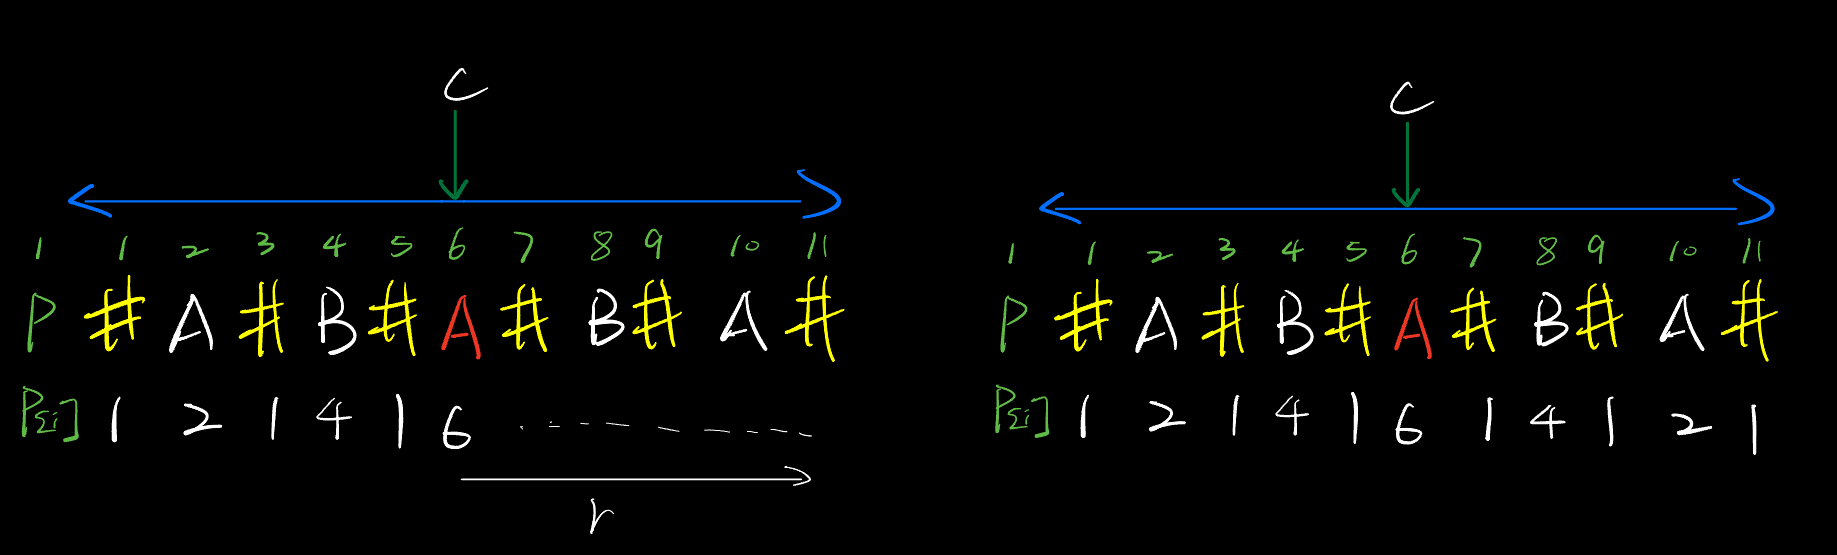 C
1 1 2 3 4 5 6 7 8 9 10 11
P # A # B # A # B # A #
P[i] 1 2 1 4 1 6
r
C
1 1 2 3 4 5 6 7 8 9 10 11
P # A # B # A # B # A #
P[i] 1 2 1 4 1 6 1 4 1 2 1